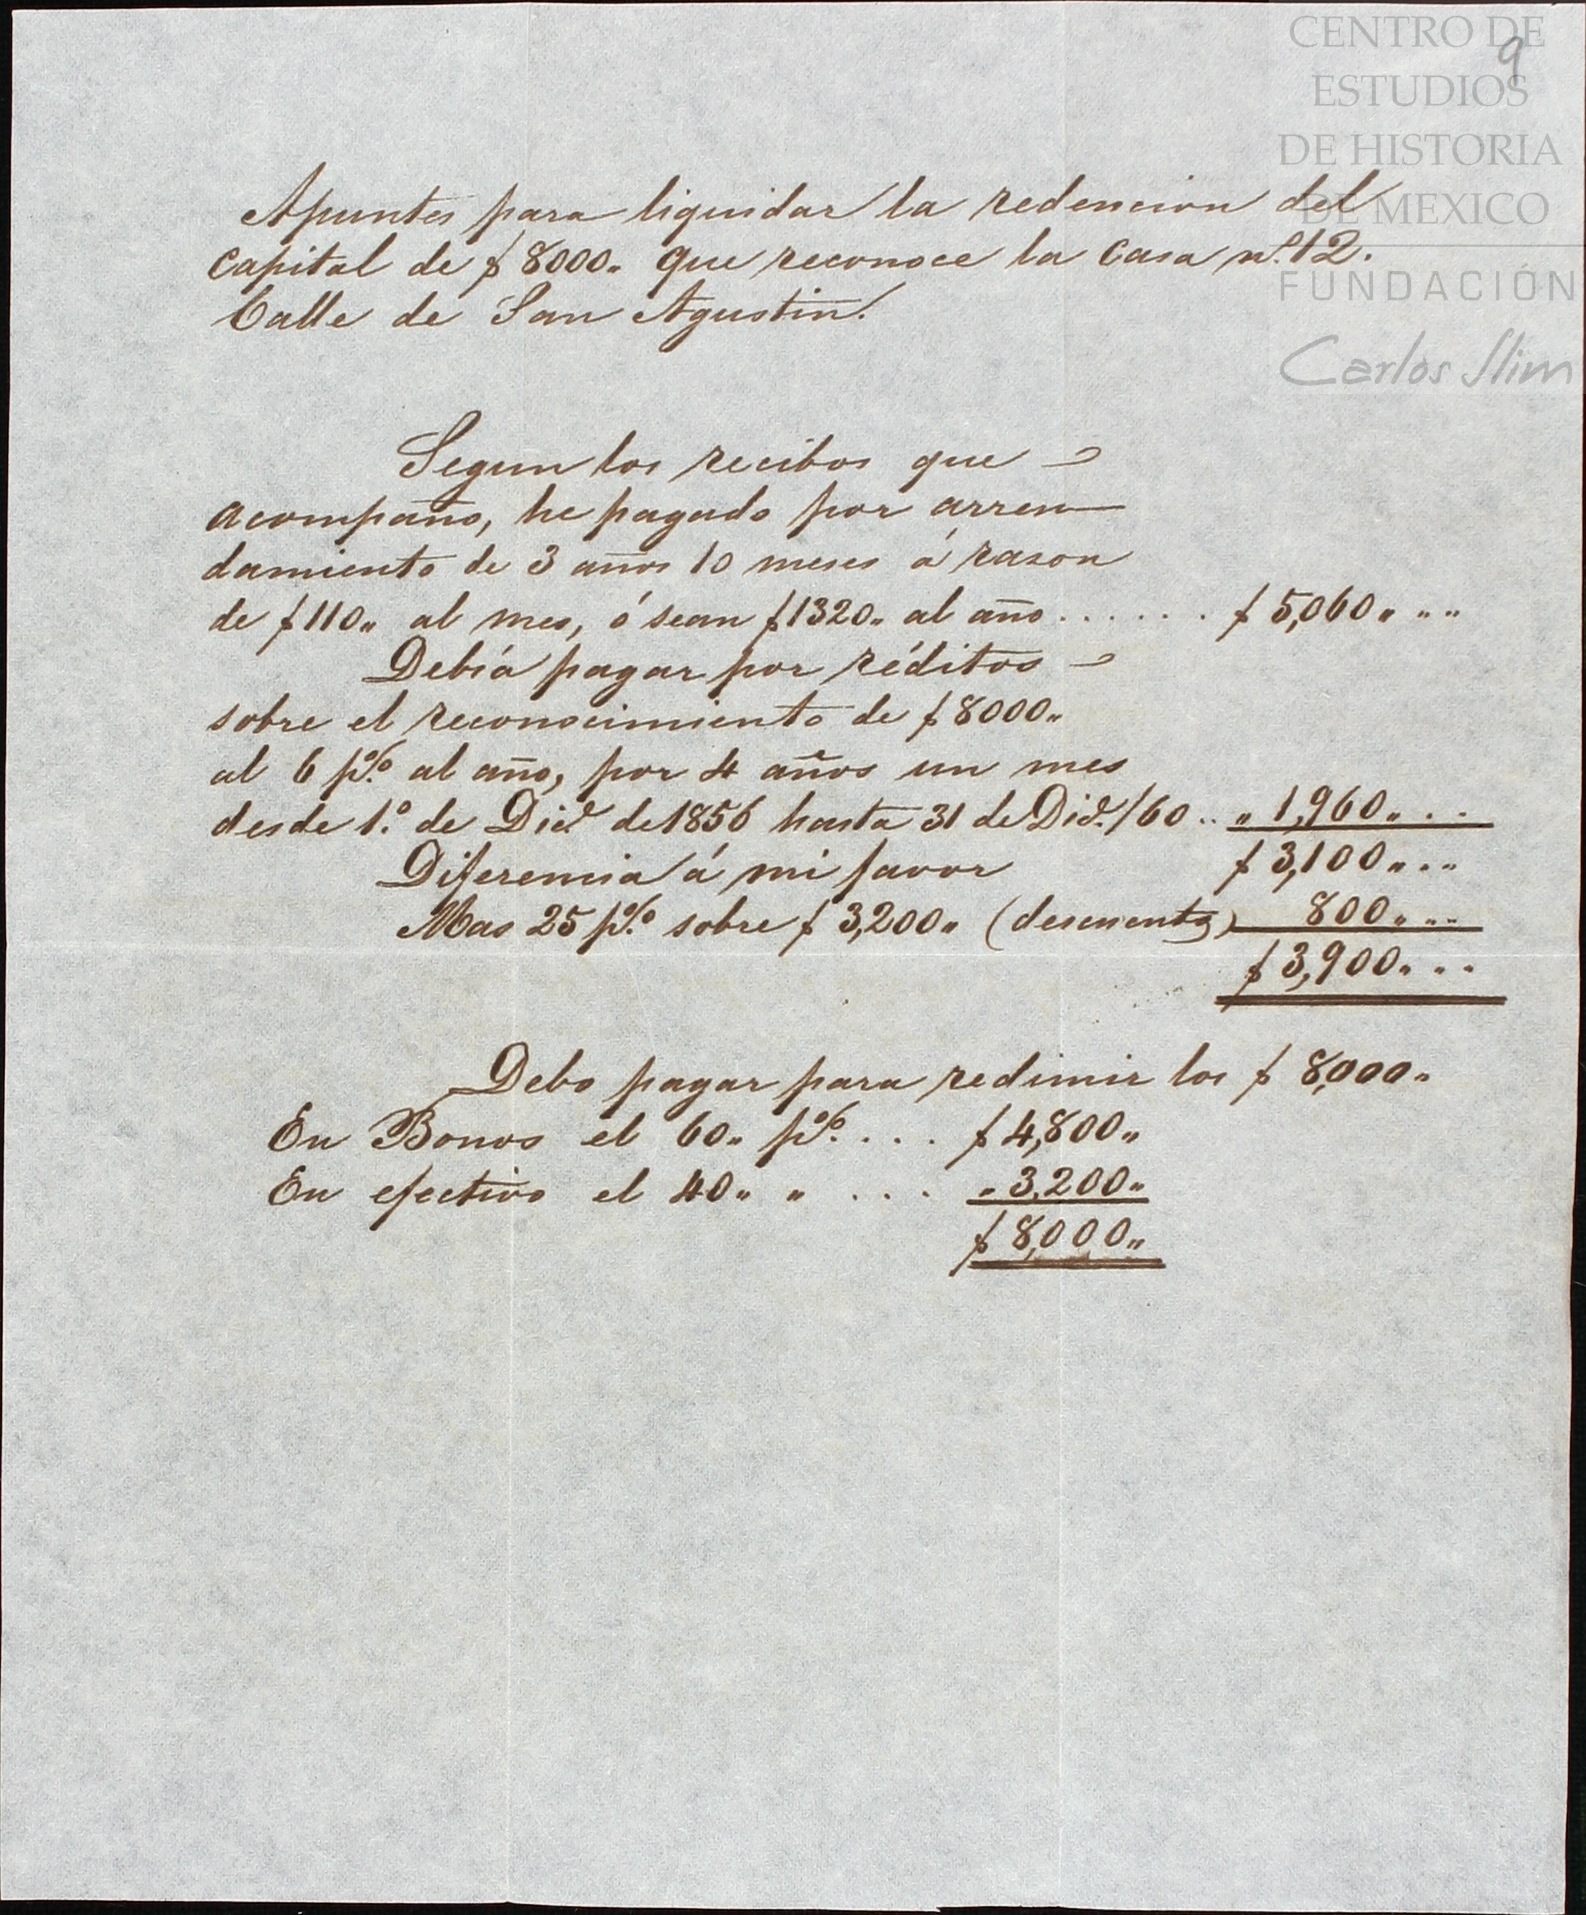 CENTRO DE
ESTUDIOS
DE HISTORIA
DE MEXICO
FUNDACIÓN
Carlos Slim
9
Apuntes para liquidar la redencion del
capital de $ 8000„ que reconoce la Casa nº. 12.
Calle de San Agustin.
Segun los recibos que
acompaño, he pagado por arren-
damiento de 3 años 10 meses á rason
de $ 110„ al mes, ó sean $ 1320„ al año . . . . . . $ 5,060„ „ „
Debia pagar por réditos
sobre el reconocimiento de $ 8000„
al 6 p%. al año, por 4 años un mes
desde 1.º de Dice. de 1856 hasta 31 de Dice./60 . . „ 1,960„ . .
Diferencia á mi favor $ 3,100„ . .
Mas 25 p%. sobre $ 3,200„ (descuento) 800„ . .
$ 3,900„ . .
Debo pagar para redimir los $ 8,000„
En Bonos el 60„ p%. . . . $ 4,800„
En efectivo el 40„ „ . . . „ 3,200„
$ 8,000„